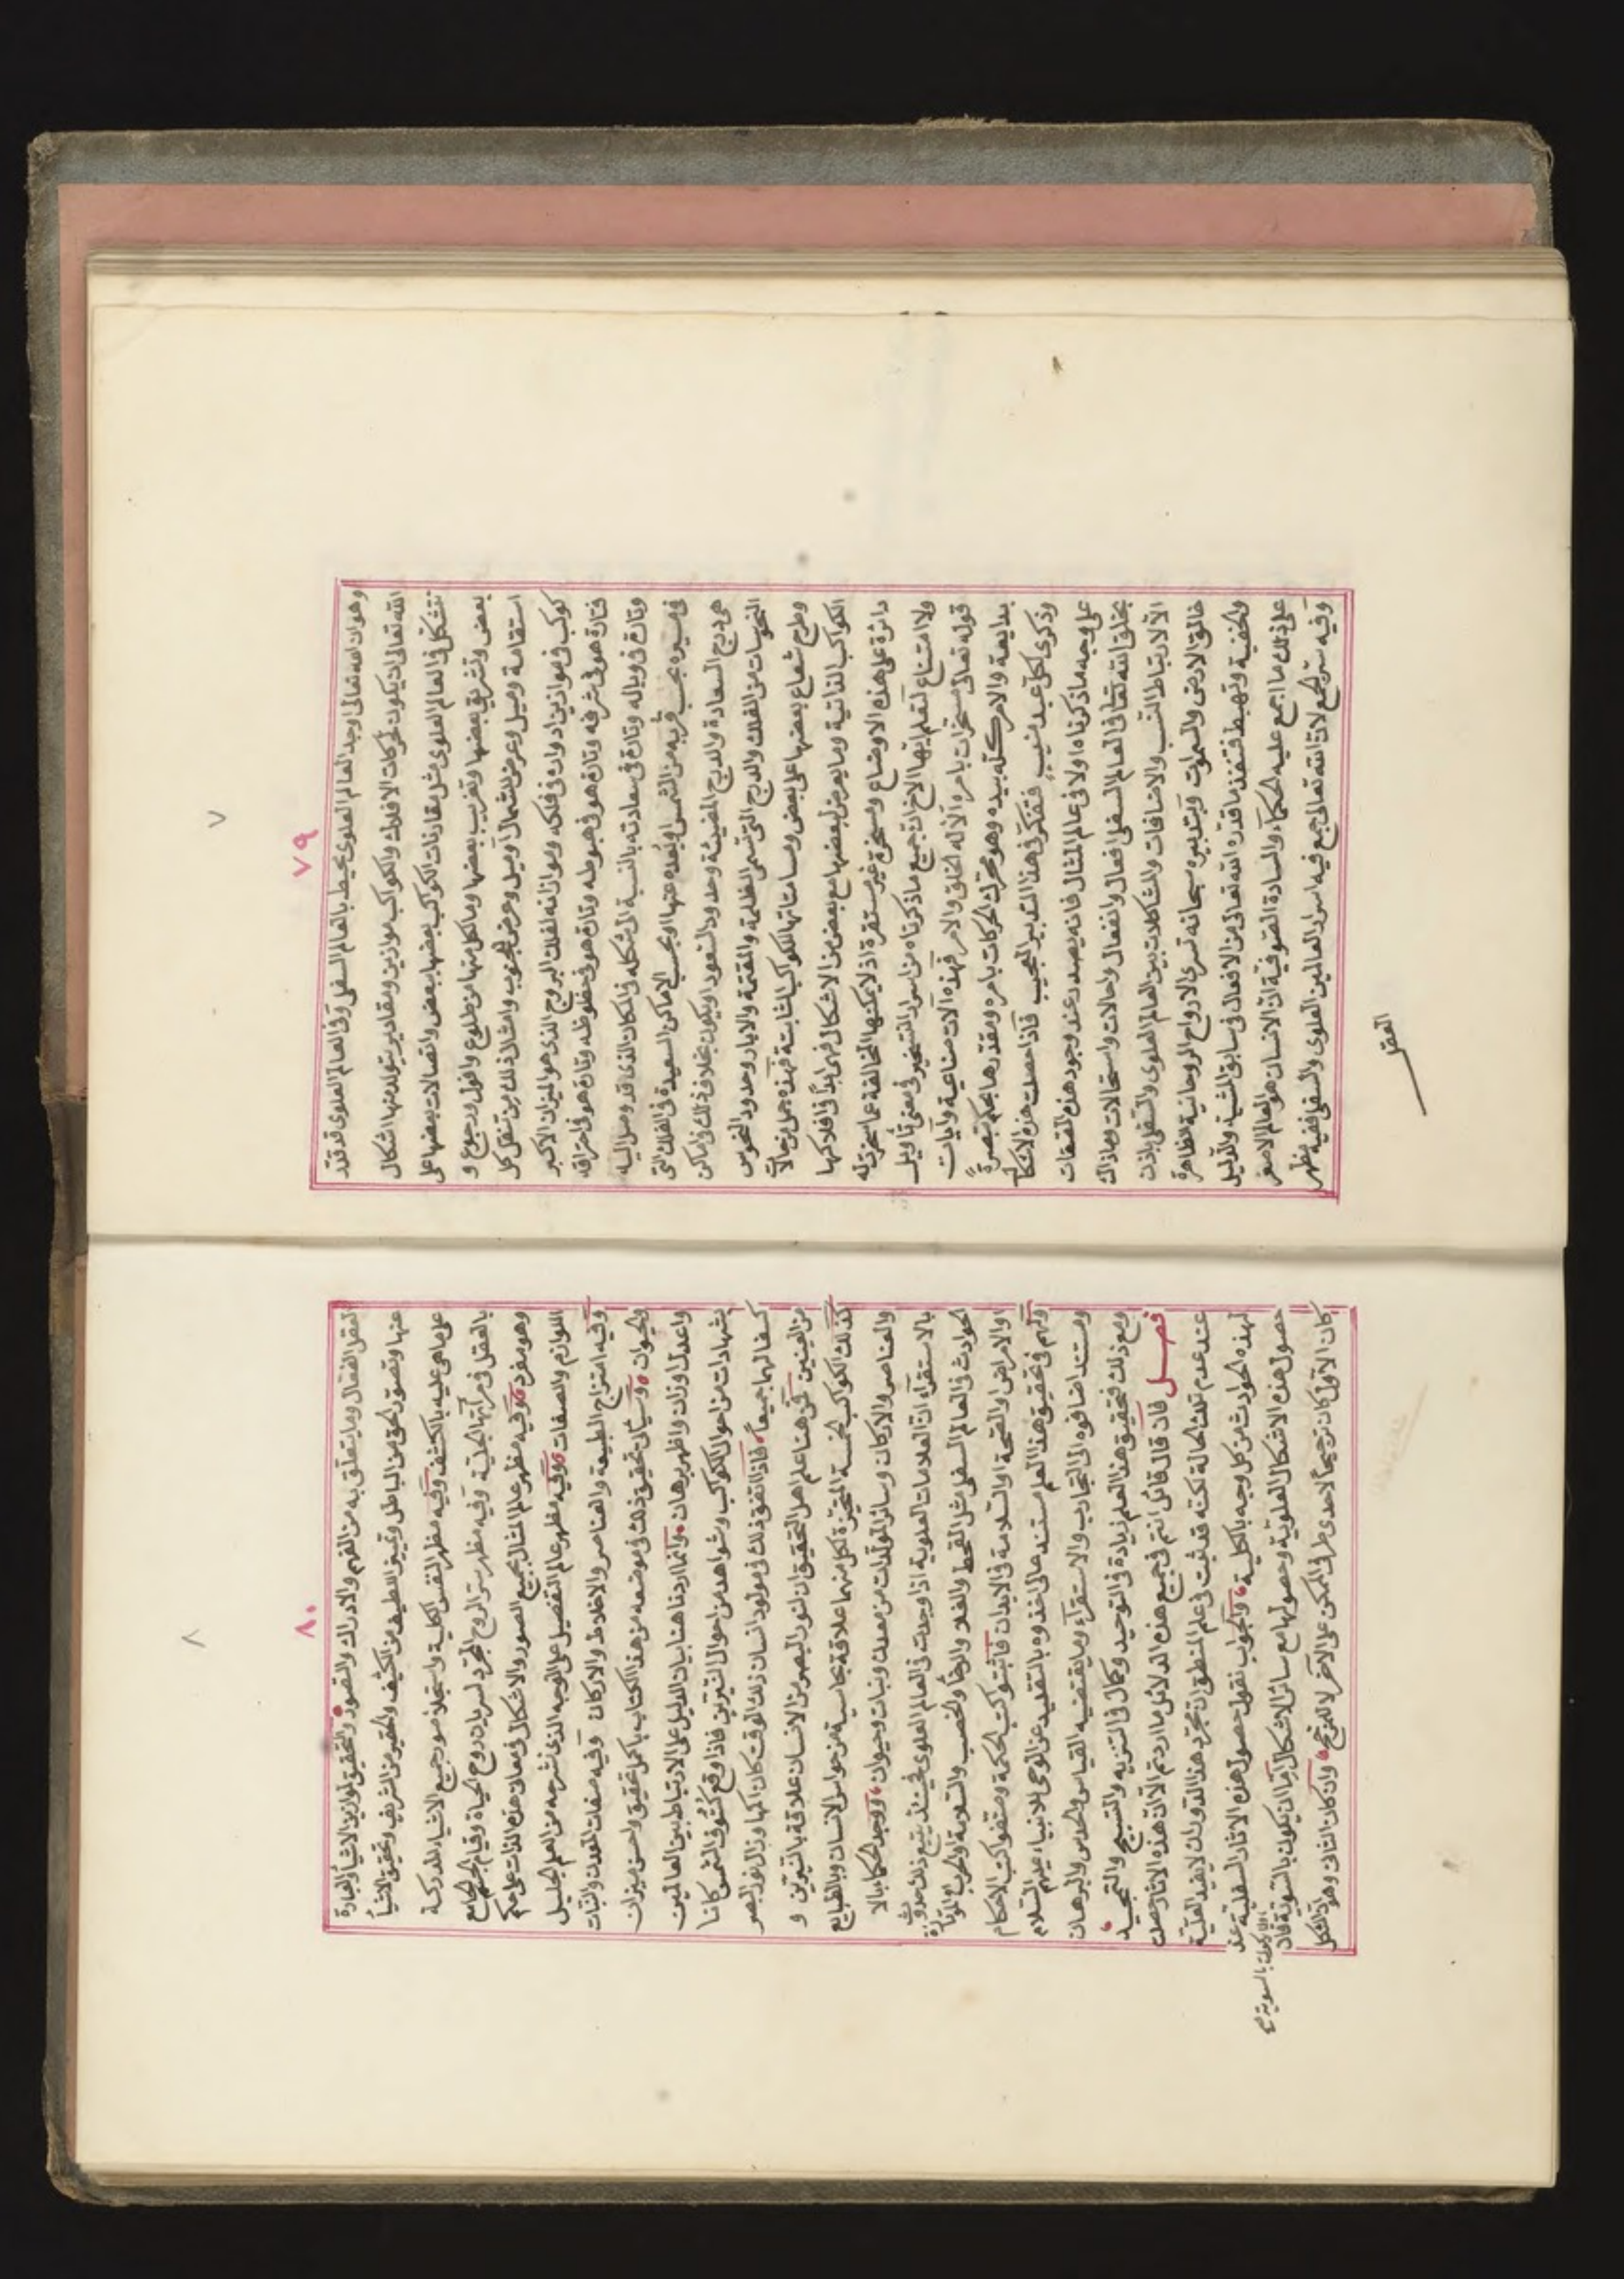 ٧
٧٩
وهو ان الله تعالى اوجد العالم العلوى محيط بالعالم السفلى وفى العالم العلوى قد قدر
الله تعالى ان يكون لحركات الافلاك والكواكب موازين ومقادير يتولد منها اشكال
تتشكل فى العالم العلوى مثل مقارنات الكواكب بعضها ببعض واتصالات بعضها على
بعض وتشريق بعضها وتغريب بعضها وما لكل منها من طلوع وافول ورجوع و
استقامة وميل وعرض للشمال او ميل وعرض للجنوب وامثال ذلك من تنقل كل
كوكب فى موازين ادواره فى فلكه وموازاته لفلك البروج الذى هو الميزان الاكبر
فتارة هو فى شرفه وتارة هو فى هبوطه وتارة هو فى حظوظه وتارة هو فى احتراقه
وتارة فى وباله وتارة فى سعادته بالنسبة الى شكله فى المكان الذى قد وصل اليه
فى مسيره بحسب قربه من الشمس او بعده عنها او بحسب الاماكن السعيدة فى الفلك التى
هى درج السعادة والدرج المضيئة وحدود السعود او يكون بخلاف ذلك فى اماكن
النحوسات من الفلك والدرج التى تسمى المظلمة والمقتمة والابار وحدود النحوس
وطرح شعاع بعضها على بعض ومسامتاتها للكواكب الثابتة فهذه جمل من حالات
الكواكب الذاتية وما يعرض لبعضها مع بعض من الاشكال فهى ابدا فى افلاكها
دائرة على هذه الاوضاع ومسخرة غير مستقرة اذ لا يمكنها المخالفة عما سخرت له
ولا امتناع لتعلم ايها الاخ ان جميع ماذكرناه من اسرار التسخير فى معنى تأويل
قوله تعالى مسخرات بامره الا له الخلق والامر فهذه آلات صناعية وآيات
بدايعة والامر كله بيده وهو محرك الحركات بامره ومقدرها بحكمه تبصرةً
وذكرى لكل عبد منيب فتفكر فى هذا التدبير العجيب فاذا حصلت هذه الاشكال
على وجه ماذكرناه اولا فى عالم المثال فانه يصدر عند وجود هذه الصفات
بخلق الله تعالى فى العالم السفلى افعال وانفعال واحالات واستحالات وماذاك
الا لارتباط النسب والاضافات والمشاكلات بين العالم العلوى والسفلى باذن
خالق الارض والسموات وبتدبيره سبحانه تسرى الارواح الروحانية الظاهرة
والخفية وتهبط فتنفذ ما قدره الله تعالى من الافعال فى سابق المشية والدليل
على ذلك ما اجمع عليه الحكمآء والسادة الصوفية ان الانسان هو العالم الاصغر
وفيه سر الجمع لان الله تعالى جمع فيه اسرار العالمين العلوى والسفلى ففيه مظهر
العقل
٨
٨٠
العقل الفعّال وما يتعلق به من الفهم والادراك والتصور والتحقيق لموازين الاشيآء والعبارة
عنها وتصور الحق من الباطل وتمييز اللطيف من الكثيف والحقير من الشريف وتحقيق الاشيآء
على ماهى عليه بالكشف وفيه مظهر النفس الكلية واستجلاء صور جميع الاشياء المدركة
بالعقل فى مرآتها الجلية وفيه مظهر سر الروح المجرد لسريان روح الحياة وقيام الجسم الجامع
وهو مفرد وفيه مظهر عالم المثال بجميع الصور والاشكال فى معان هذه الذات على حكم
اللوازم والصفات وفيه مظهر عالم التفصيل على الوجه الذى نشرحه من العلم الجليل
وفيه امتزاج الطبيعة والعناصر والاخلاط والاركان وفيه صفات المعدن والنبات
والحيوان وسيأتى تحقيق ذلك فى موضعه من هذا الكتاب باكمل تحقيق واحسن ميزان
واعدل اوزان واظهر برهان وانما اردنا هنا بيان الدليل على الارتباط بين العالمين
بشهادات من احوال الكواكب وشواهد من احوال النيرين فاذا وقع كسوف الشمس كانا
كسفا لهما جميعا فاذا اتفق ذلك فى مولود انسان ذلك الوقت كان اكمها وزال نور البصر
من العينين فمن هنا علم اهل التحقيق ان لنور البصر من الانسان علاقة بالنيرين و
كذلك الكواكب الخمسة المتحيزة لكل منهما علاقة بحاسية من حواس الانسان وبالطبايع
والعناصر والاركان وسائر المولدات من معدن ونبات وحيوان ووجد الحكماء بالا
بالاستقرآء ان العلامات العلوية اذا وجدت فى العالم العلوى فحينئذ يتبع ذلك حدوث
الحوادث فى العالم السفلى مثل القحط والغلاء والرخآء والخصب والسلامة والحرب
والامراض والصحة والسلامة فى الابدان فاثبتوا كتب الحكمة وصنفوا كتب الاحكام
وانهم فى تحقيق هذا العلم مستند على ما اخذوه بالتقليد عن الوحى للانبياء عليهم السلام
ومستند اضافوه الى التجارب والاستقرآء وما يقتضيه القياس والحدس والبرهان
ومع ذلك فتحقيق هذا العلم زيادة فى التوحيد وكمال فى التنزيه والتسبيح والتمجيد
فصل فان قال قائل انتم فى جميع هذه الدلائل ما اردتم الا ان هذه الاثار حصلت
عند عدم تلك الحالة لكنه قد ثبت فى علم المنطق ان مجرد هذا الدوران لا يفيد العلية
لهذه الحوادث من كل وجه بالكلية والجواب نقول حصول هذه الاثار السفلية عند
حصول هذه الاشكال العلوية وحصولها مع سائر الاشكال اما ان يكون بالسوية فان
كان الاول كان ترجيحا لاحدى طرفى الممكن على الآخر لا لمرجح وان كان الثانى وهو ان لتشكل